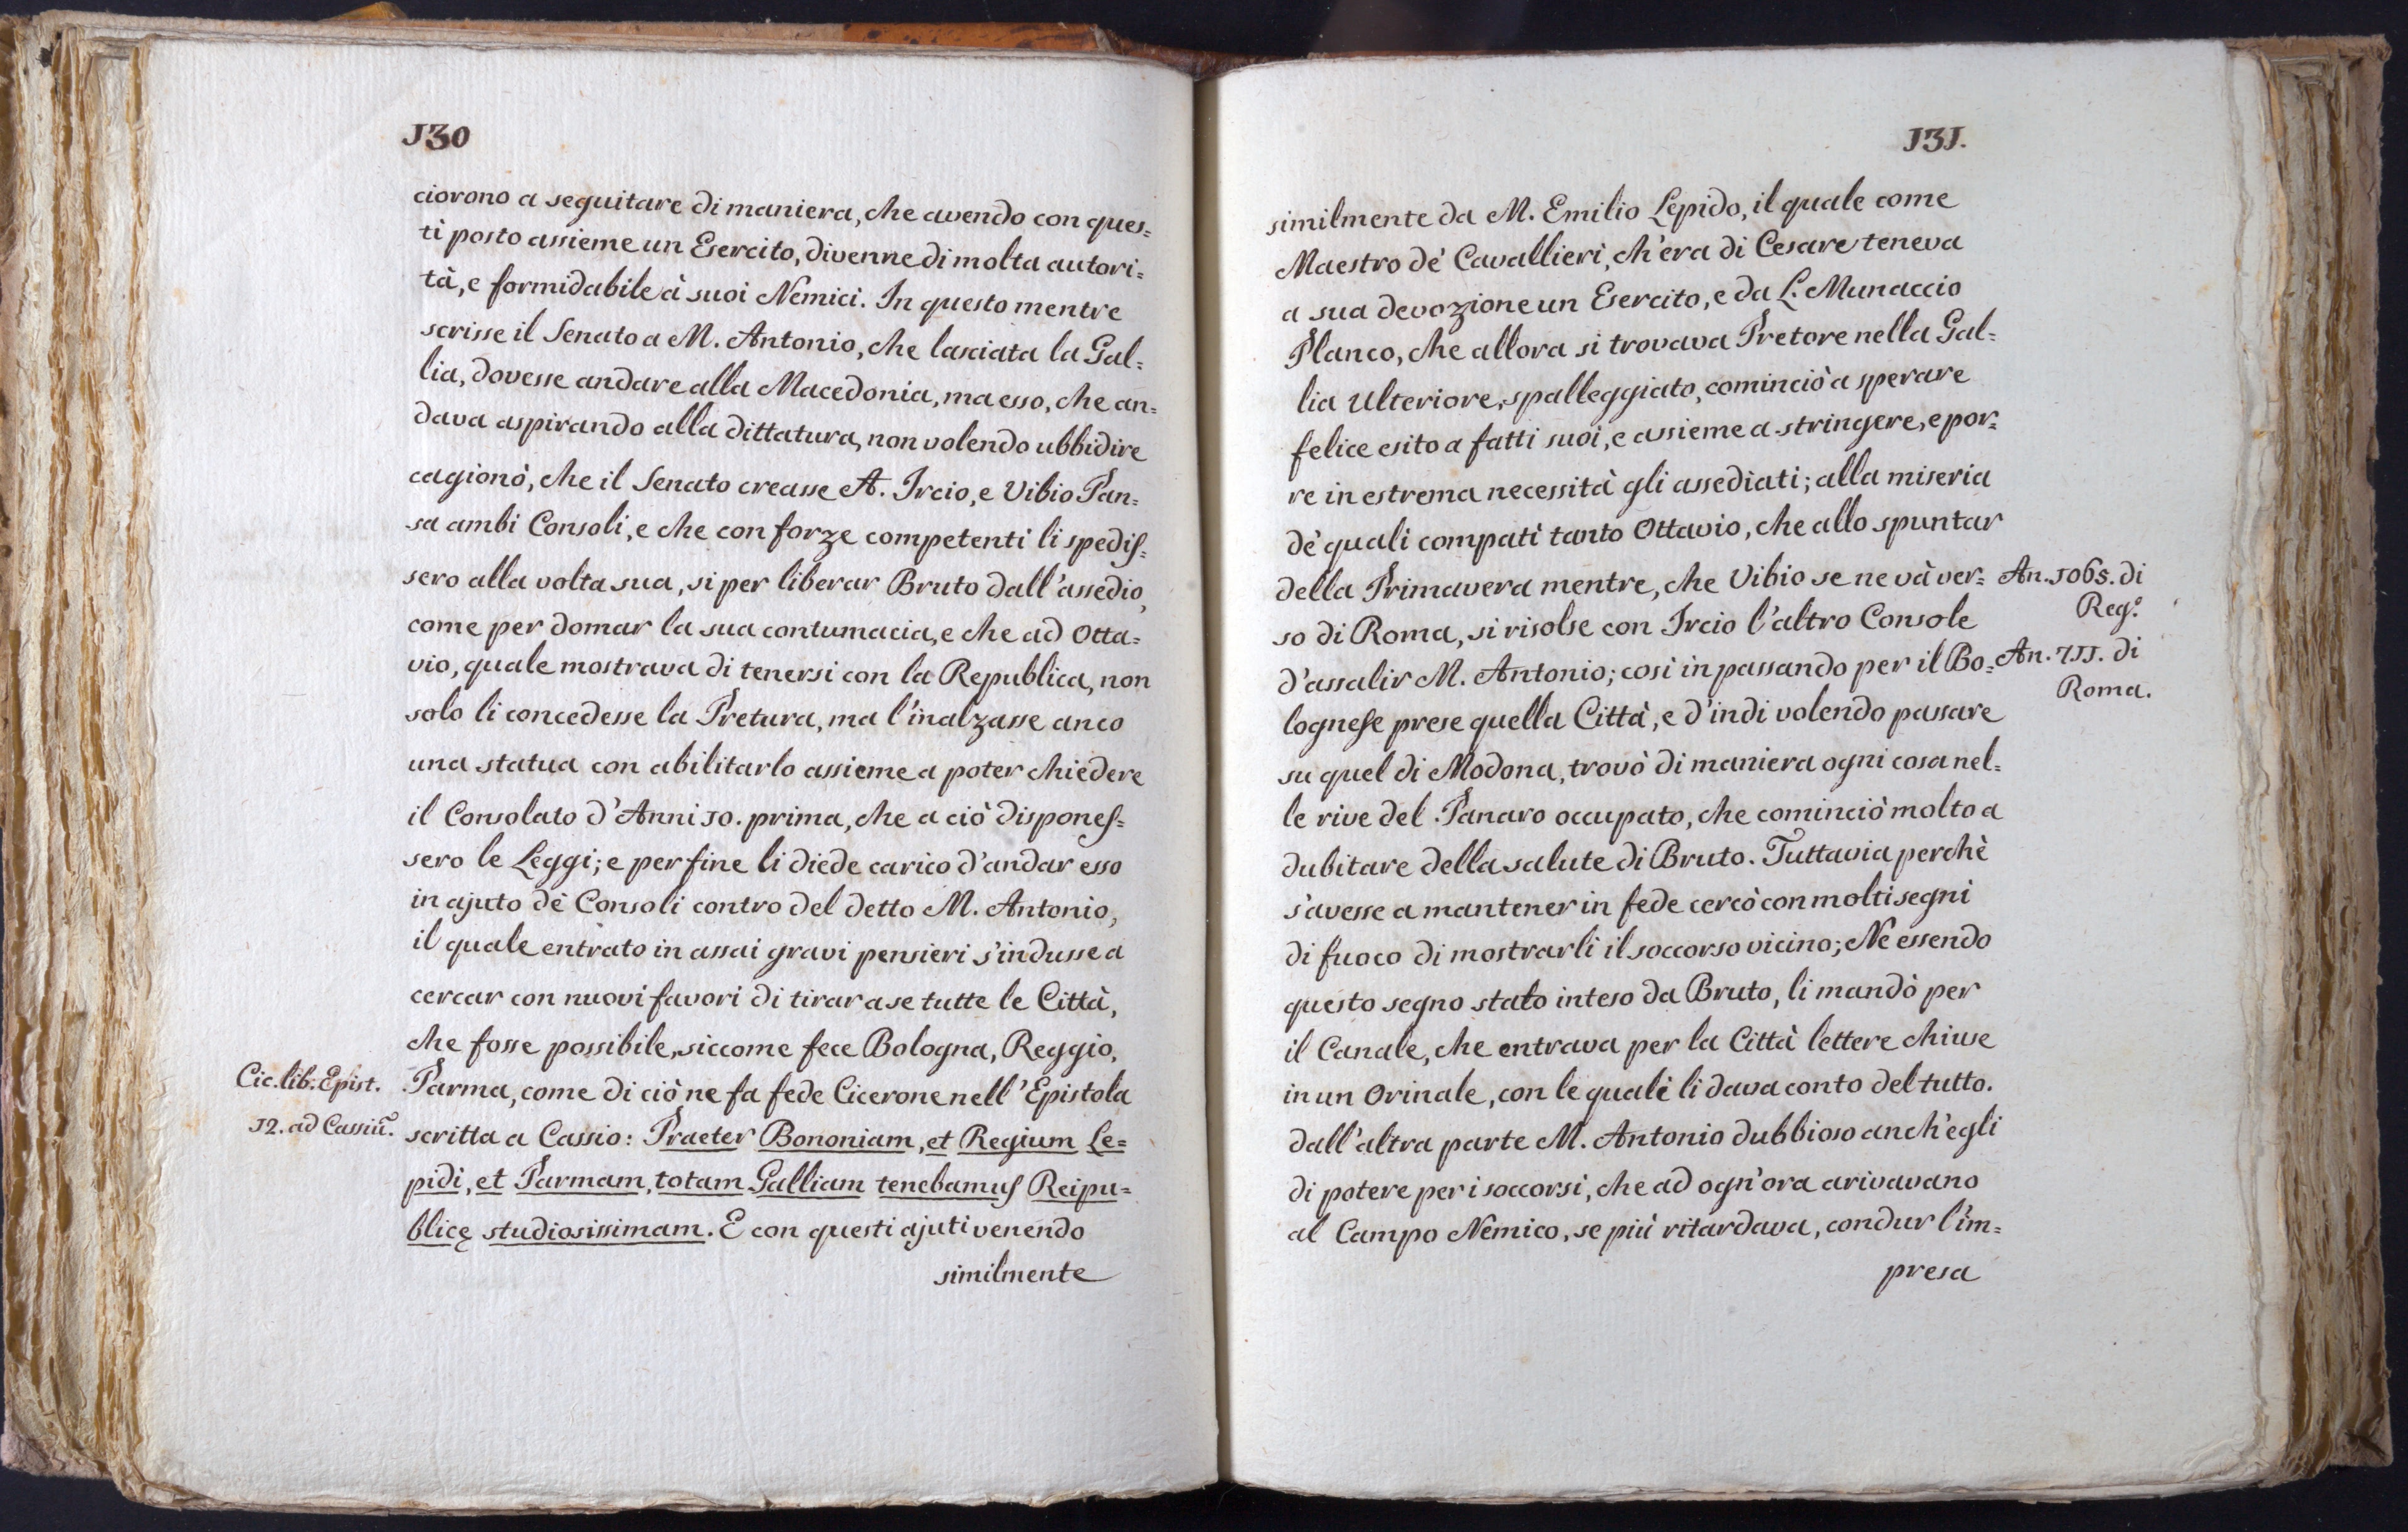 130
ciorono a seguitare di maniera, che avendo con ques=
ti posto assieme un Esercito, divenne di molta autori=
tà, e formidabile à suoi Nemici. In questo mentre
scrisse il Senato a M. Antonio, che lasciata la Gal=
lia, dovesse andare alla Macedonia, ma esso, che an=
dava aspirando alla dittatura, non volendo ubbidire
cagionò, che il Senato creasse A. Ircio, e Vibio Pan=
sa ambi Consoli, e che con forze competenti li spedis=
sero alla volta sua, si per liberar Bruto dall'assedio,
come per domar la sua contumacia, e che ad Otta=
vio, quale mostrava di tenersi con la Republica, non
solo li concedesse la Pretura, ma l'inalzasse anco
una statua con abilitarlo assieme a poter chiedere
il Consolato d'Anni 10. prima, che a ciò dispones=
sero le Leggi; e per fine li diede carico d'andar esso
in ajuto dè Consoli contro del detto M. Antonio,
il quale entrato in assai gravi pensieri s'indusse a
cercar con nuovi favori di tirar a se tutte le Città,
che fosse possibile, siccome fece Bologna, Reggio,
Cic. lib. Epist.
12. ad Cassiũ.
Parma, come di ciò ne fa fede Cicerone nell'Epistola
scritta a Cassio: Praeter Bononiam, et Regium Le=
pidi, et Parmam, totam Galliam tenebamus Reipu=
blicę studiosissimam. E con questi ajuti venendo
similmente
131.
similmente da M. Emilio Lepido, il quale come
Maestro dè Cavallieri, ch'era di Cesare teneva
a sua devozione un Esercito, e da L. Munaccio
Planco, che allora si trovava Pretore nella Gal=
lia Ulteriore, spalleggiato, cominciò a sperare
felice esito a fatti suoi, e assieme a stringere, e por=
re in estrema necessità gli assediati; alla miseria
dè quali compatì tanto Ottavio, che allo spuntar
della Primavera mentre, che Vibio se ne và ver=
so di Roma, si risolse con Ircio l'altro Console
d'assalir M. Antonio; così in passando per il Bo=
An. 1065. di
Reg.º
An. 711. di
Roma.
lognese prese quella Città, e d'indi volendo passare
su quel di Modona, trovò di maniera ogni cosa nel=
le rive del Panaro occupato, che cominciò molto a
dubitare della salute di Bruto. Tuttavia perchè
s'avesse a mantener in fede cercò con molti segni
di fuoco di mostrarli il soccorso vicino; Ne essendo
questo segno stato inteso da Bruto, li mandò per
il Canale, che entrava per la Città lettere chiuse
in un Orinale, con le quali li dava conto del tutto.
dall'altra parte M. Antonio dubbioso anch'egli
di potere per i soccorsi, che ad ogn'ora arivavano
al Campo Nemico, se più ritardava, condur l'im=
presa